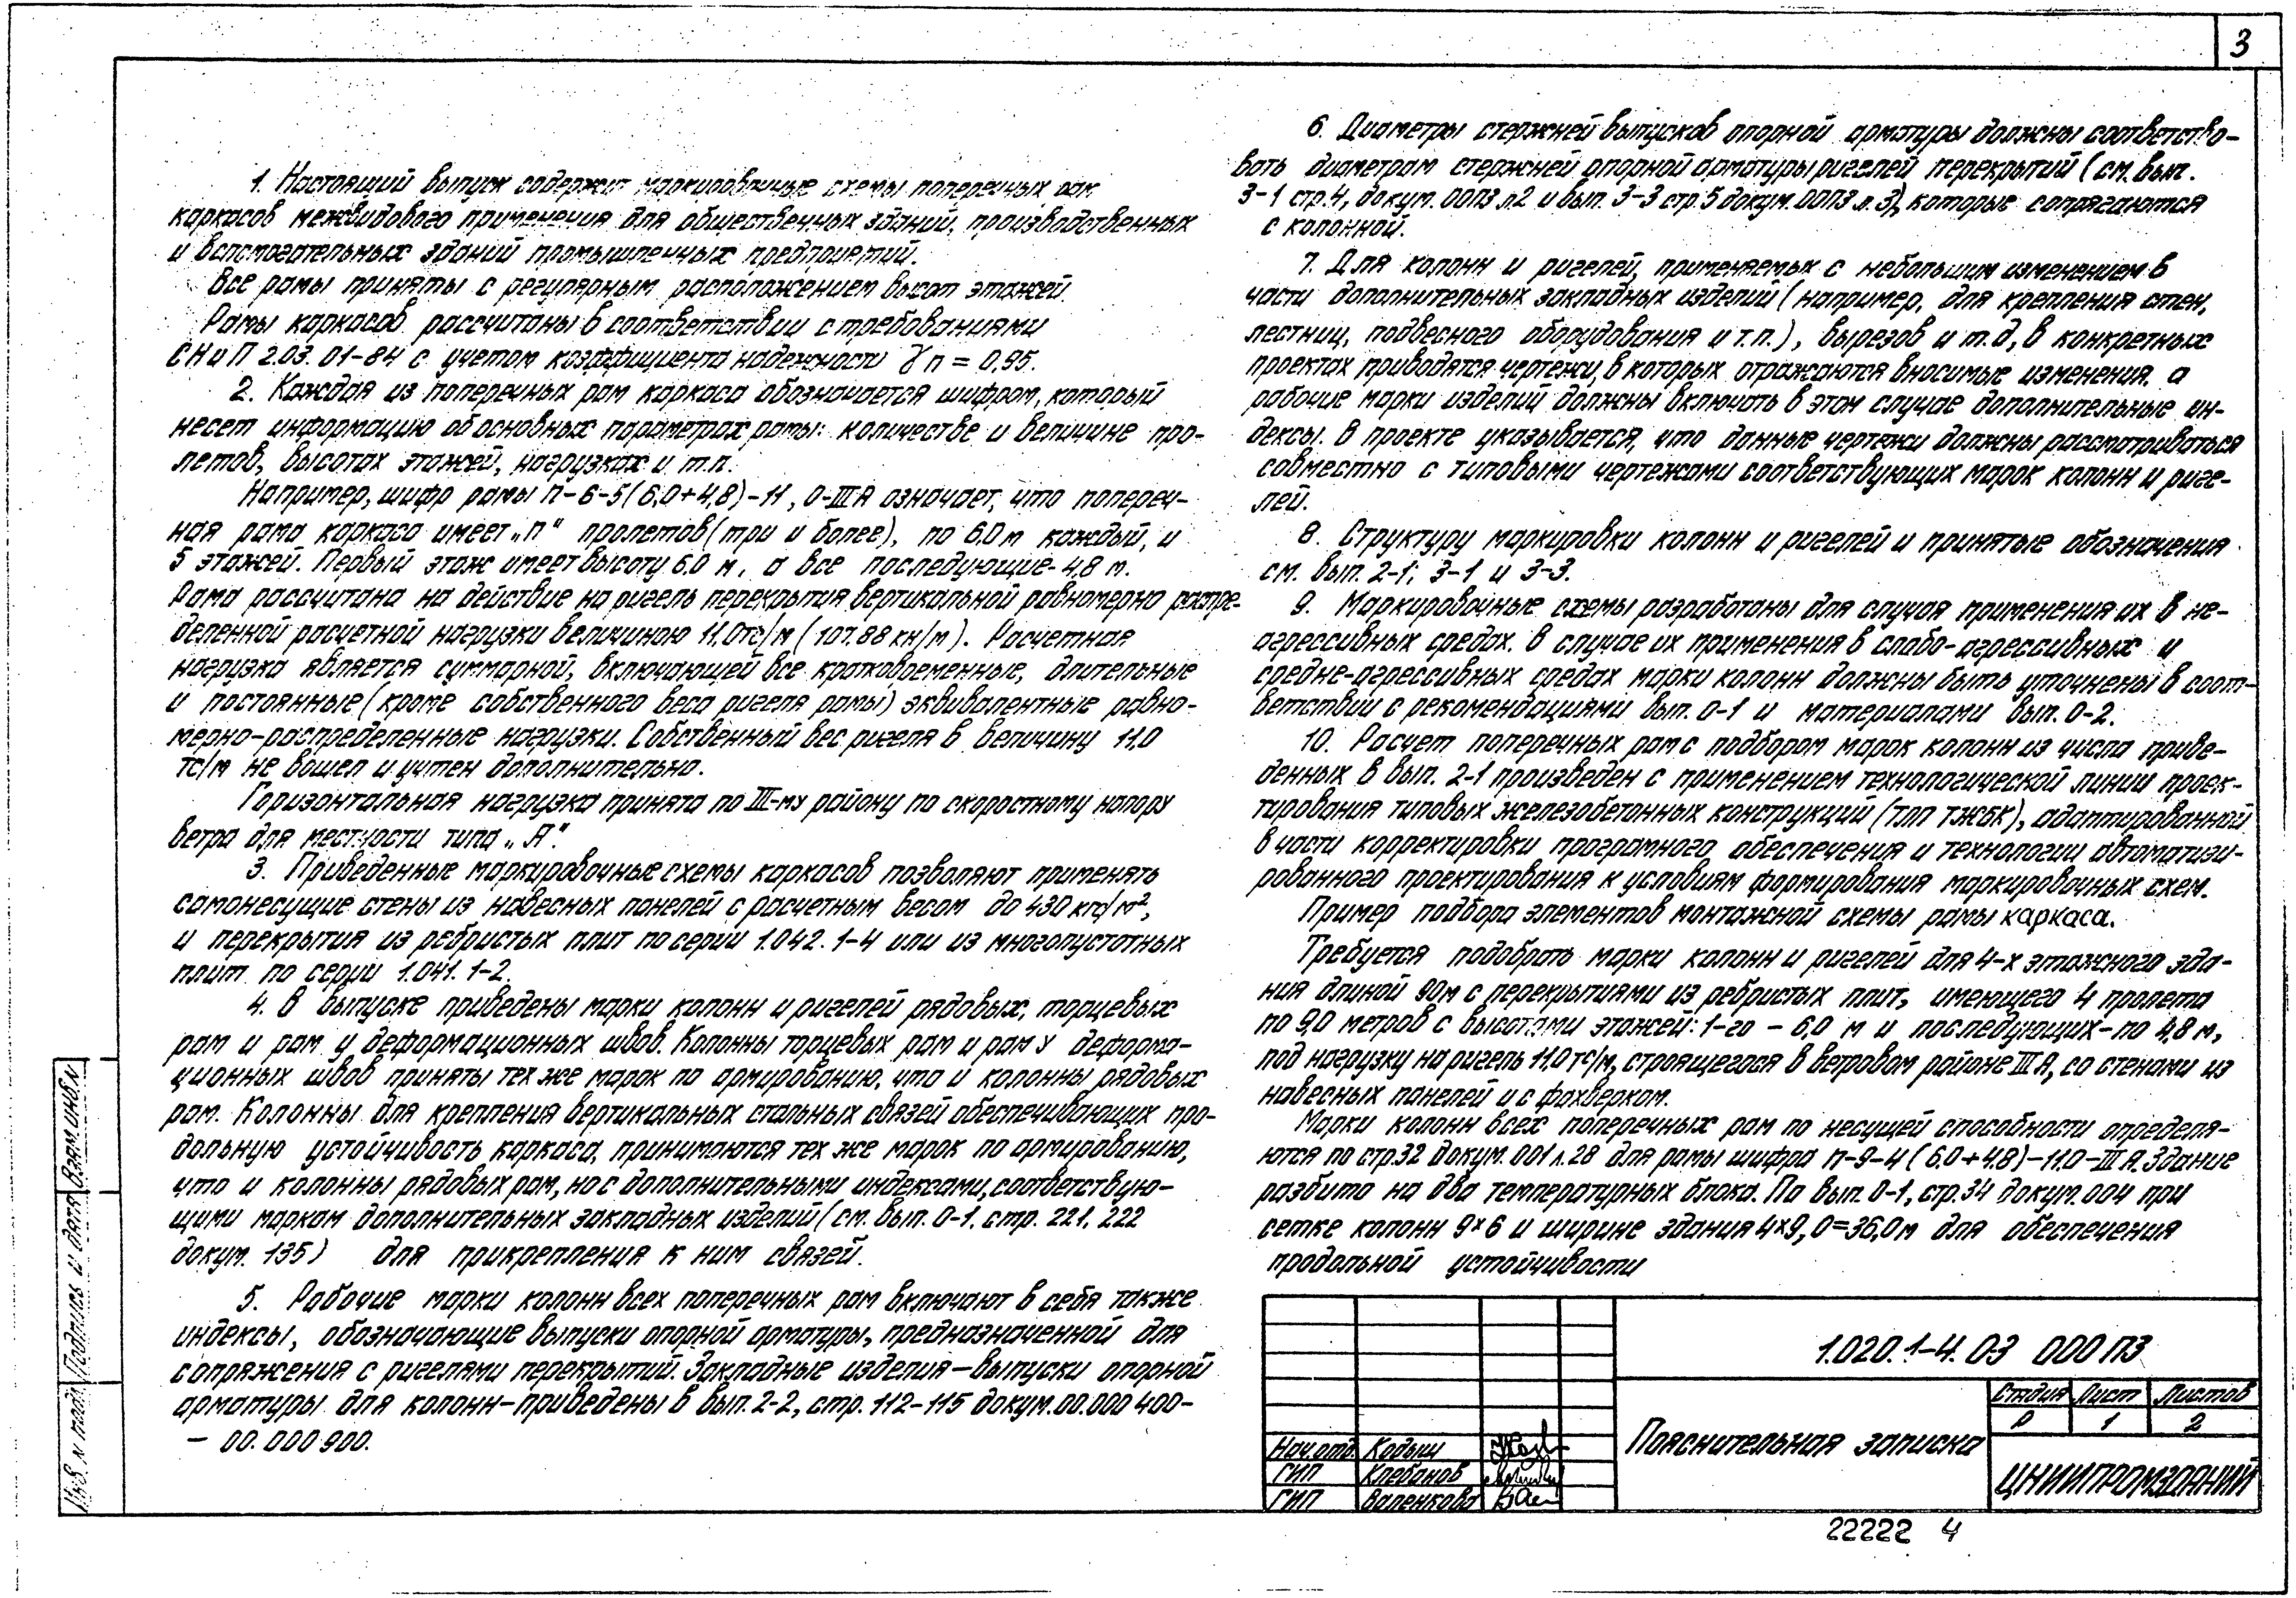 3
1. Настоящий выпуск содержит маркировочные схемы поперечных рам
каркасов межвидового применения для общественных зданий, производственных
и вспомогательных зданий промышленных предприятий.
Все рамы приняты с регулярным расположением высот этажей.
Рамы каркасов рассчитаны в соответствии с требованиями
СНиП 2.03.01-84 с учетом коэффициента надежности γn = 0,95.
2. Каждая из поперечных рам каркаса обозначается шифром, который
несет информацию об основных параметрах рамы: количестве и величине про-
летов, высотах этажей, нагрузках и т.п.
Например, шифр рамы п-6-5(6,0+4,8)-11,0-IIIА означает, что попереч-
ная рама каркаса имеет „п" пролетов (три и более), по 6.0м каждый, и
5 этажей. Первый этаж имеет высоту 6.0 м, а все последующие- 4,8 м.
Рама рассчитана на действие на ригель перекрытия вертикальной равномерно распре-
деленной расчетной нагрузки величиною 11,0тс/м (107.88 кн/м). Расчетная
нагрузка является суммарной, включающей все кратковременные, длительные
и постоянные (кроме собственного веса ригеля рамы) эквивалентные равно-
мерно-распределенные нагрузки. Собственный вес ригеля в величину 11,0
тс/м не вошел и учтен дополнительно.
Горизонтальная нагрузка принята по III-му району по скоростному напору
ветра для местности типа „А".
3. Приведенные маркировочные схемы каркасов позволяют применять
самонесущие стены из навесных панелей с расчетным весом до 430 кгс/м²,
и перекрытия из ребристых плит по серии 1.042.1-4 или из многопустотных
плит по серии 1.041.1-2.
4. В выпуске приведены марки колонн и ригелей рядовых, торцевых
рам и рам у деформационных швов. Колонны торцевых рам и рам у деформа-
ционных швов приняты тех же марок по армированию, что и колонны рядовых
рам. Колонны для крепления вертикальных стальных связей обеспечивающих про-
дольную устойчивость каркаса, принимаются тех же марок по армированию,
что и колонны рядовых рам, но с дополнительными индексами, соответствую-
щими маркам дополнительных закладных изделий (см. вып. 0-1. стр. 221, 222
докум. 135) для прикрепления к ним связей.
5. Рабочие марки колонн всех поперечных рам включают в себя также
индексы, обозначающие выпуски опорной арматуры, предназначенной для
сопряжения с ригелями перекрытий. Закладные изделия-выпуски опорной
арматуры для колонн-приведены в вып. 2-2, стр. 112-115 докум.00.000 400-
- 00.000 900.
6. Диаметры стержней выпусков опорной арматуры должны соответство-
вать диаметрам стержней опорной арматуры ригелей перекрытий (см. вып.
3-1 стр.4, докум. 00ПЗ л.2 и вып. 3-3 стр.5 докум. 00ПЗ л.3), которые сопрягаются
с колонной.
7. Для колонн и ригелей, применяемых с небольшим изменением в
части дополнительных закладных изделий (например, для крепления стен,
лестниц, подвесного оборудования и т.п.), вырезов и т.д, в конкретных
проектах приводятся чертежи, в которых отражаются вносимые изменения, а
рабочие марки изделий должны включать в этом случае дополнительные ин-
дексы. В проекте указывается, что данные чертежи должны рассматриваться
совместно с типовыми чертежами соответствующих марок колонн и риге-
лей.
8. Структуру маркировки колонн и ригелей и принятые обозначения
см. вып. 2-1; 3-1 и 3-3.
9. Маркировочные схемы разработаны для случая применения их в не-
агрессивных средах. В случае их применения в слабо-агрессивных и
средне-агрессивных средах марки колонн должны быть уточнены в соот-
ветствии с рекомендациями вып. 0-1 и материалами вып. 0-2.
10. Расчет поперечных рам с подбором марок колонн из числа приве-
денных в вып. 2-1 произведен с применением технологической линии проек-
тирования типовых железобетонных конструкций (ТЛП ТЖБК), адаптированной
в части корректировки програмного обеспечения и технологии автоматизи-
рованного проектирования к условиям формирования маркировочных схем.
Пример подбора элементов монтажной схемы рамы каркаса.
Требуется подобрать марки колонн и ригелей для 4-х этажного зда-
ния длиной 90м с перекрытиями из ребристых плит, имеющего 4 пролета
по 9,0 метров с высотами этажей: 1-го - 6,0 м и последующих-по 4,8 м,
под нагрузку на ригель 11,0 тс/м, строящегося в ветровом районе IIIА, со стенами из
навесных панелей и с фахверком.
Марки колонн всех поперечных рам по несущей способности определя-
ются по стр.32 докум. 001 л.28 для рамы шифра п-9-4(6.0+4.8)-11.0-IIIА. Здание
разбито на два температурных блока. По вып. 0-1, стр.34 докум. 004 при
сетке колонн 9×6 и ширине здания 4×9,0=36,0м для обеспечения
продольной устойчивости
1.020.1-4. 0-3 000 ПЗ
Пояснительная записка
Стадия Лист Листов
Р 1 2
ЦНИИПРОМЗДАНИЙ
Нач.отд. Кодыш
ГИП Клебанов
ГИП Валенкова
Взам.инв.№
Подпись и дата
Инв. № подл.
22222 4